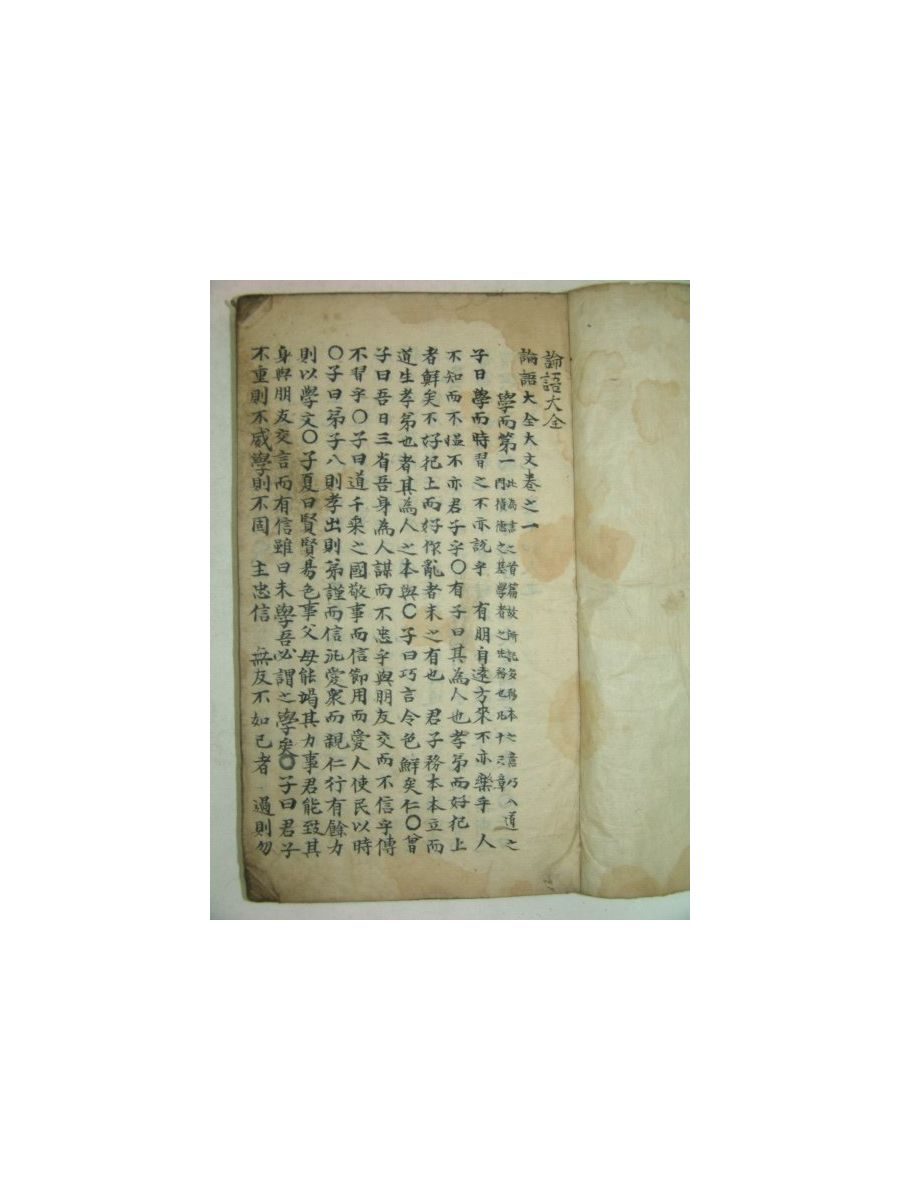 論語大全
論語大全大文卷之一
學而第一 此為書之首篇故所記多務本之意乃入道之門積德之基學者之先務也凡十六章
子曰學而時習之不亦說乎 有朋自遠方來不亦樂乎 人
不知而不慍不亦君子乎〇有子曰其為人也孝弟而好犯上
者鮮矣不好犯上而好作亂者未之有也 君子務本本立而
道生孝弟也者其為人之本與〇子曰巧言令色鮮矣仁〇曾
子曰吾日三省吾身為人謀而不忠乎與朋友交而不信乎傳
不習乎〇子曰道千乘之國敬事而信節用而愛人使民以時
〇子曰弟子入則孝出則弟謹而信汎愛衆而親仁行有餘力
則以學文〇子夏曰賢賢易色事父母能竭其力事君能致其
身與朋友交言而有信雖曰未學吾必謂之學矣〇子曰君子
不重則不威學則不固 主忠信 無友不如己者 過則勿